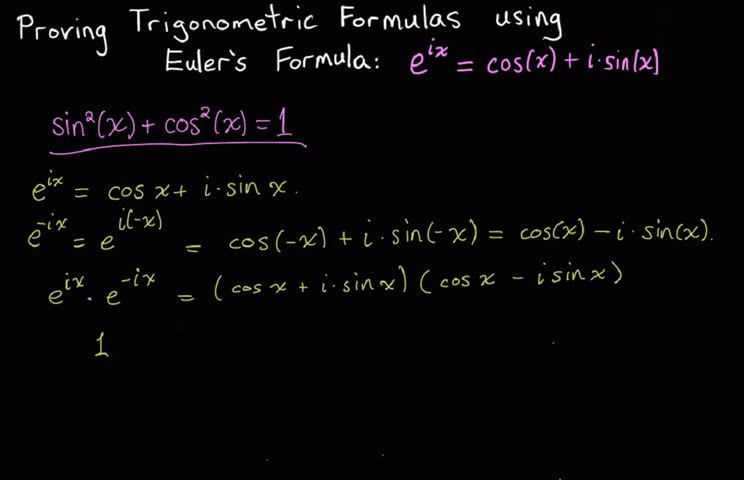 Proving Trigonometric Formulas using
Euler's Formula: e^{ix} = cos(x) + i·sin(x)
sin²(x) + cos²(x) = 1
e^{ix} = cos x + i·sin x.
e^{-ix} = e^{i(-x)} = cos(-x) + i·sin(-x) = cos(x) - i·sin(x).
e^{ix} · e^{-ix} = (cos x + i·sin x)(cos x - i sin x)
1